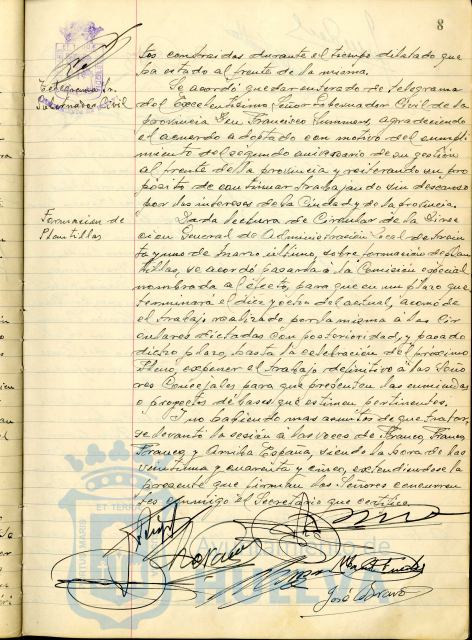 8
tos contraidos durante el tiempo dilatado que
ha estado al frente de la misma.
Telegrama Sr.
Gobernador Civil
Se acordó quedar enterado de telegrama
del Excelentísimo Señor Gobernador Civil de la
provincia Don Francisco Summers, agradeciendo
el acuerdo adoptado con motivo del cumpli-
miento del segundo aniversario de su gestión
al frente de la provincia y reiterando su pro
pósito de continuar trabajando sin descanso
por los intereses de la Ciudad y de la provincia.
Formación de
Plantillas
Dada lectura de Circular de la Direc
ción General de Administración Local de trein
ta y uno de Marzo último, sobre formación de Plan
tillas, se acordó pasarla á la Comisión especial
nombrada al efecto, para que en un plazo que
terminará el diez y ocho del actual, acomode
el trabajo realizado por la misma á las Cir
culares dictadas con posterioridad, y pasado
dicho plazo, hasta la celebración del próximo
Pleno, exponer el trabajo definitivo á los Seño
res Concejales para que presenten las enmiendas
o proyectos de bases que estimen pertinentes.
Y no habiendo mas asuntos de que tratar,
se levantó la sesión á las voces de Franco, Franco,
Franco, y Arriba España, siendo la hora de las
veintiuna y cuarenta y cinco, extendiéndose la
presente que firman los Señores concurren
tes conmigo el Secretario que certifico.
ET TERRÆ
Ayuntamiento de
HUELVA
José Bravo